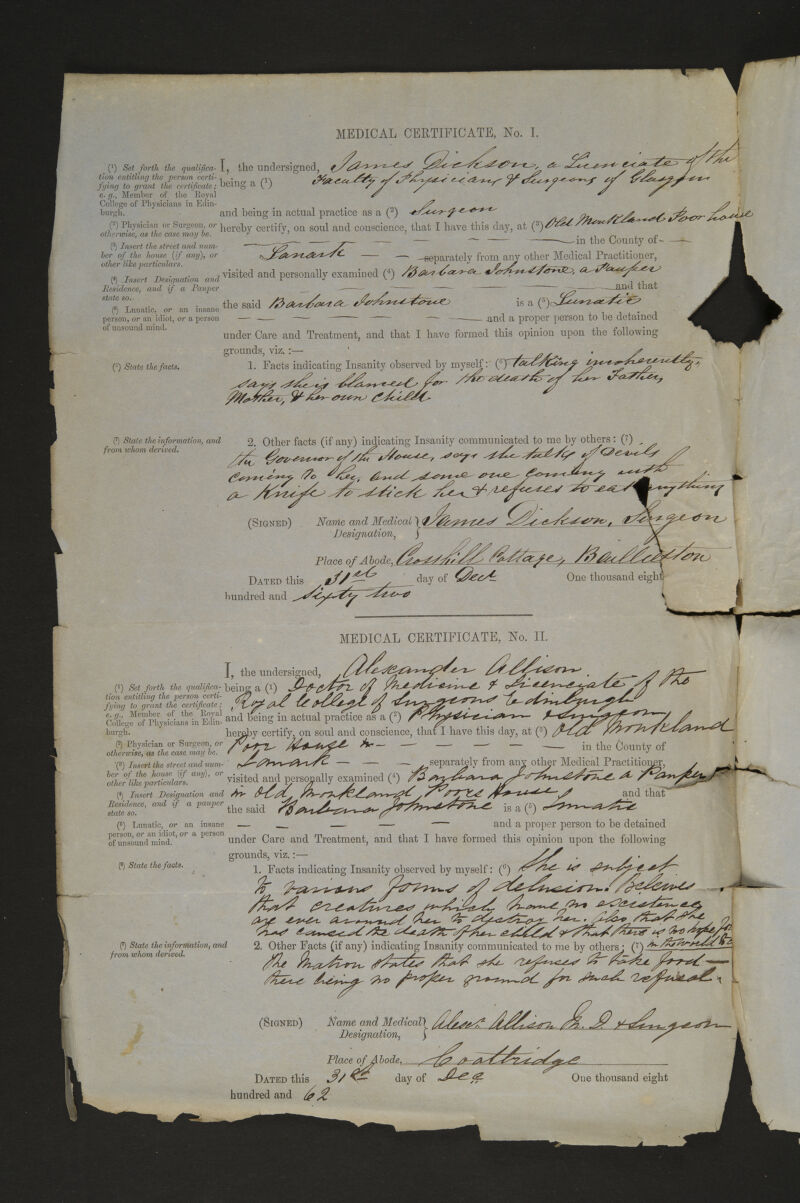 MEDICAL CERTIFICATE, No. I.
(¹) Set forth the qualifica-
tion entitling the person certi-
fying to grant the certificate;
e. g., Member of the Royal
College of Physicians in Edin-
burgh.
(²) Physician or Surgeon, or
otherwise, as the case may be.
(³) Insert the street and num-
ber of the house (if any), or
other like particulars.
(⁴) Insert Designation and
Residence, and if a Pauper
state so.
(⁵) Lunatic, or an insane
person, or an idiot, or a person
of unsound mind.
(⁶) State the facts.
(⁷) State the information, and
from whom derived.
I, the undersigned, James Dickson, a Licenciate of the
being a (¹) Faculty of Physicians & Surgeons of Glasgow
and being in actual practice as a (²) Surgeon
hereby certify, on soul and conscience, that I have this day, at (³) Old Monkland Poor house
in the County of
Lanark separately from any other Medical Practitioner,
visited and personally examined (⁴) Barbara Johnstone, a Pauper
and that
the said Barbara Johnstone is a (⁵) Lunatic
and a proper person to be detained
under Care and Treatment, and that I have formed this opinion upon the following
grounds, viz. :—
1. Facts indicating Insanity observed by myself: (⁶) talking incoherently,
says she is blamed for the death of her Father,
Mother, & her own Child.
2. Other facts (if any) indicating Insanity communicated to me by others: (⁷)
the Governor of the House, says she talks of Devils
coming to her, and some one coming with
a Knife to stick her & refuses to eat anything
(SIGNED) Name and Medical Designation, } James Dickson, Surgeon
Place of Abode, Crosshill Cottage, Baillieston
DATED this 31st day of Decr One thousand eight
hundred and sixty two
MEDICAL CERTIFICATE, No. II.
(¹) Set forth the qualifica-
tion entitling the person certi-
fying to grant the certificate;
e. g., Member of the Royal
College of Physicians in Edin-
burgh.
(²) Physician or Surgeon, or
otherwise, as the case may be.
(³) Insert the street and num-
ber of the house (if any), or
other like particulars.
(⁴) Insert Designation and
Residence, and if a pauper
state so.
(⁵) Lunatic, or an insane
person, or an idiot, or a person
of unsound mind.
(⁶) State the facts.
(⁷) State the information, and
from whom derived.
I, the undersigned, Alexander Allison
being a (¹) Doctor of Medicine & Licenciate of the
Royal College of Surgeons Edinburgh
and being in actual practice as a (²) Physician & Surgeon
hereby certify, on soul and conscience, that I have this day, at (³) Old Monkland
Poor House in the County of
Lanark separately from any other Medical Practitioner,
visited and personally examined (⁴) Barbara Johnstone a Pauper
in Old Monkland Poors House and that
the said Barbara Johnstone is a (⁵) Lunatic
and a proper person to be detained
under Care and Treatment, and that I have formed this opinion upon the following
grounds, viz. :—
1. Facts indicating Insanity observed by myself: (⁶) She is subject
to various forms of delusion. Beleives
that creatures which have no existence
are ever around her to destroy her. Also that she
has caused the death of her child & that there is no hope for
in the world
2. Other Facts (if any) indicating Insanity communicated to me by others: (⁷)
The Matron states that she refuses to take food—
there being no proper ground for such refusal.
(SIGNED) Name and Medical Designation, } Alexr. Allison M. D. & Surgeon
Place of Abode, Coatbridge
DATED this 31st day of Dec One thousand eight
hundred and 62